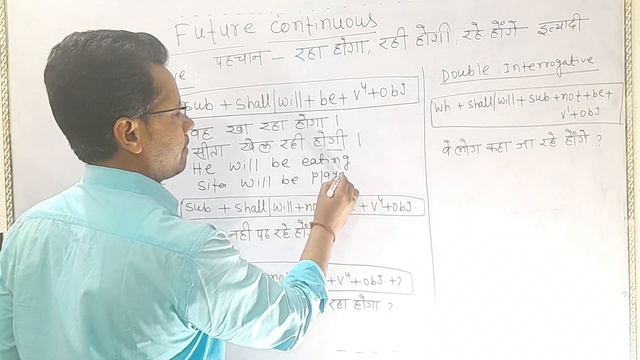 Future Continuous
पहचान – रहा होगा, रही होगी, रहे होंगे इत्यादी
ve
Sub + Shall/will + be + V⁴ + Obj
वह खा रहा होगा ।
सीता खेल रही होगी ।
He will be eating
Sita will be play
Sub + Shall/will + no + V⁴ + Obj
नही पढ रहे
+ V⁴ + Obj + ?
रहा होगा ?
Double Interrogative
Wh + Shall/will + Sub + not + be +
V⁴ + Obj
वे लोग कहा जा रहे होंगे ?